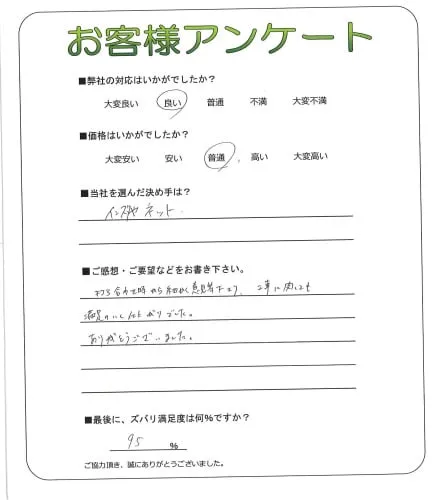 お客様アンケート
■弊社の対応はいかがでしたか?
大変良い 良い 普通 不満 大変不満
■価格はいかがでしたか?
大変安い 安い 普通 高い 大変高い
■当社を選んだ決め手は?
ネット.
■ご感想・ご要望などをお書き下さい。
打ち合わせ時から細かく意見等下さり、工事に関しても
満足のいく仕上がりでした。
ありがとうございました。
■最後に、ズバリ満足度は何%ですか?
95 %
ご協力頂き、誠にありがとうございました。